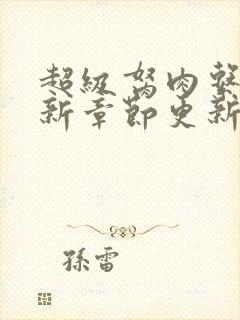 超級努肉系
新章節更新
孫雷